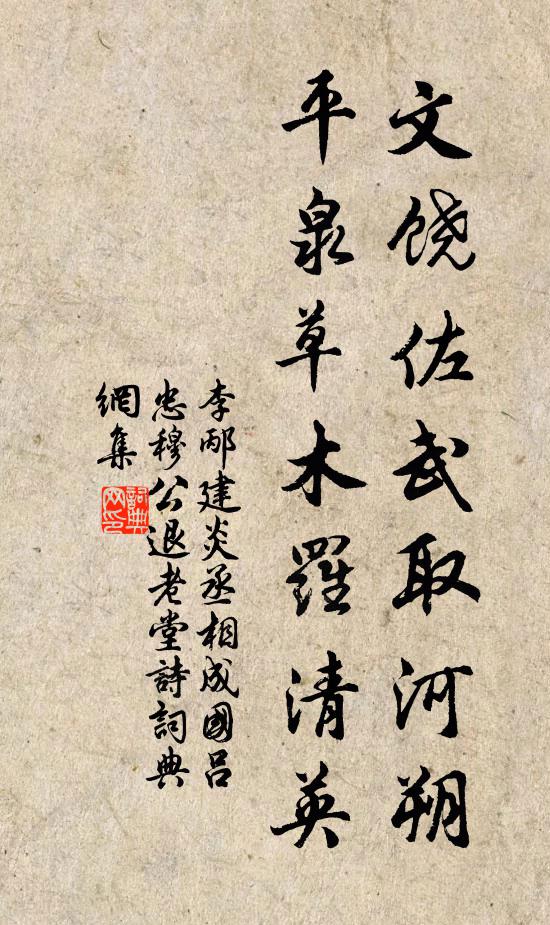 文饶佐武取河朔
平泉草木羅清英
李邴建炎丞相成國呂
忠穆公退老堂詩詞典
網集
詞典網印